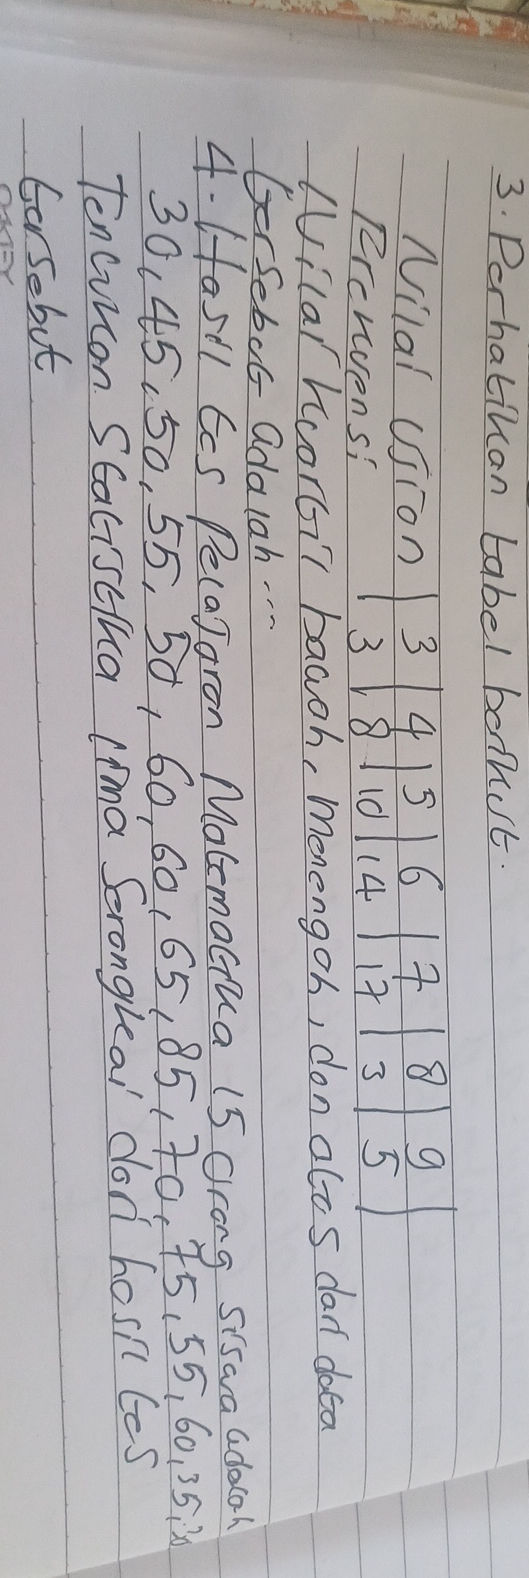 3. Perhatikan tabel berikut.
Nilai Ujian | 3 | 4 | 5 | 6 | 7 | 8 | 9 |
Frekuensi | 3 | 8 | 10 | 14 | 17 | 3 | 5 |
Nilai kuartil bawah, menengah, dan atas dari data
tersebut adalah ...
4. Hasil tes Pelajaran Matematika 15 orang siswa adalah
30, 45, 50, 55, 50, 60, 60, 65, 85, 70, 75, 55, 60, 35,
Tentukan Statistika lima Serangkai dari hasil tes
tersebut